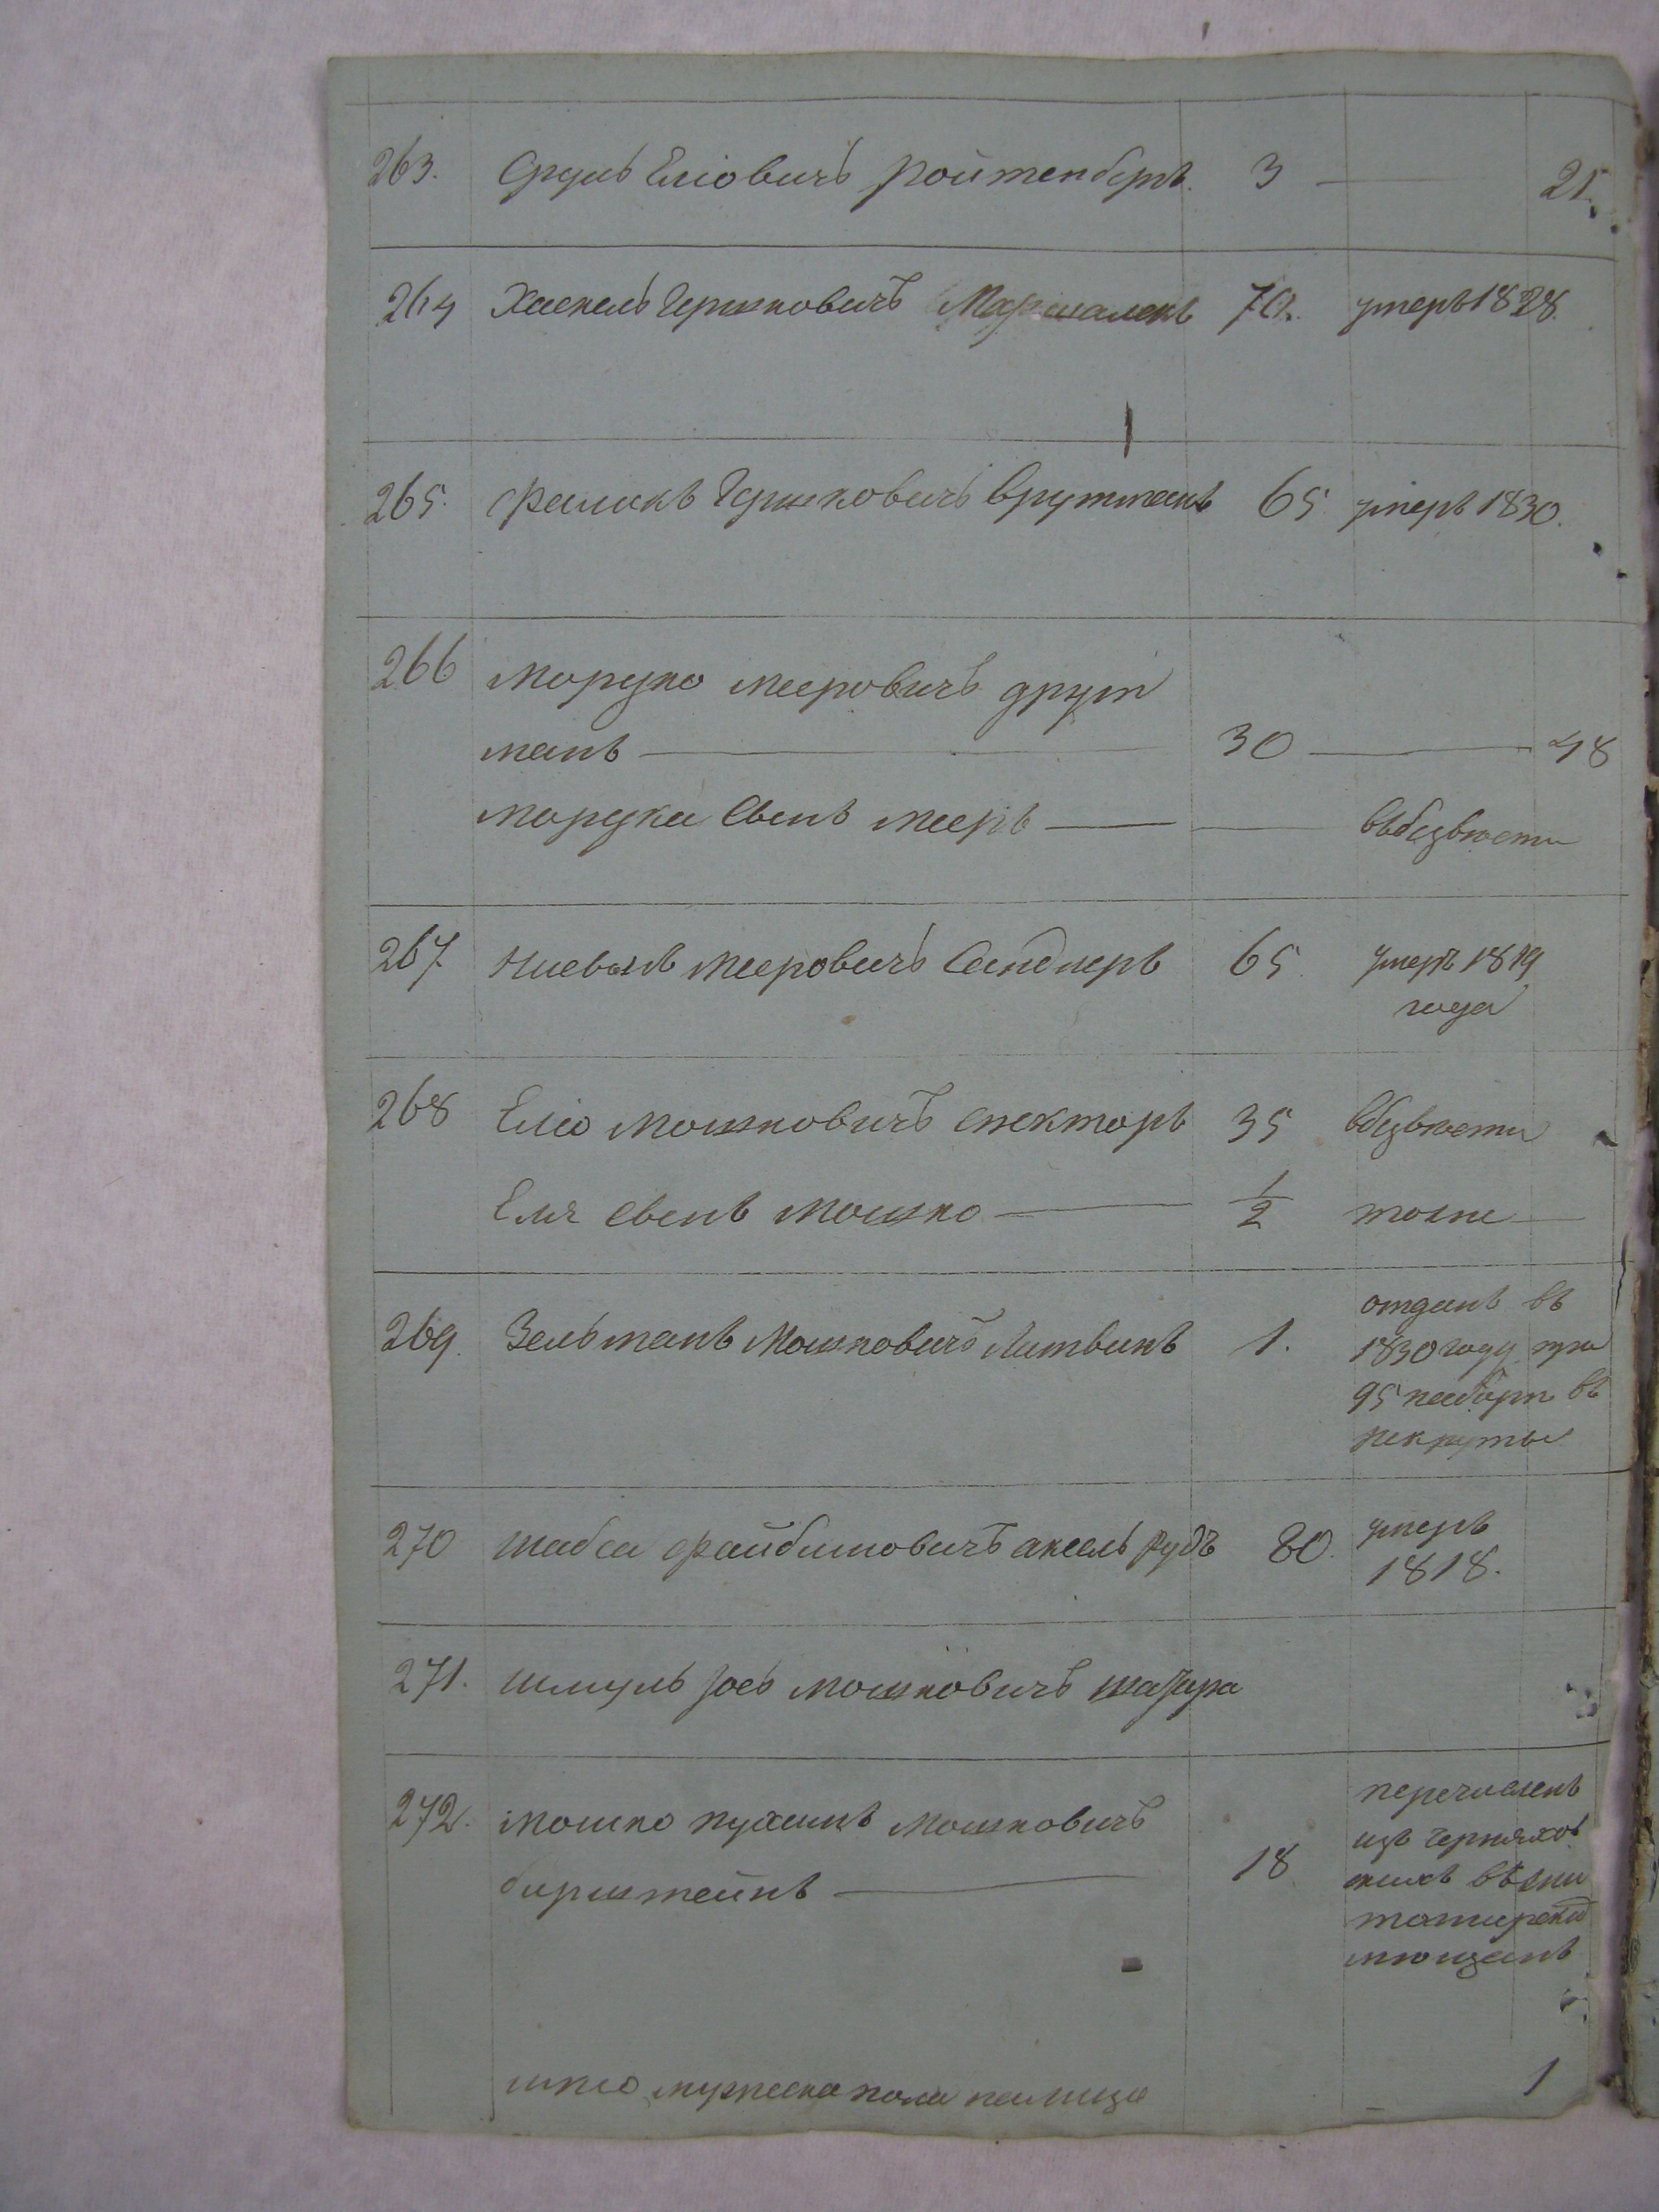 263. Срулъ Еліовичъ Ройтенберъ. 3 — 21.
264 Хаскель Гершковичъ Маршалекъ 70. умеръ 1828.
265. Фаликъ Гершковичъ Врутманъ 65 умеръ 1830.
266 Мордко Мееровичъ друт
манъ — 30 — 48
Мордка Сынъ Мееръ — — въбезвести
267 Мееровичъ Сандлеръ 65. умеръ 1819
года
268 Еліо Мошковичъ спекторъ 35 вбезвести
Еля сынъ Мошко — 1/2 тоже —
269. Зельманъ Мошковичъ Литвинъ 1. отданъ въ
1830 году при
95 наборе въ
рекруты
270 Шабса Файбишовичъ аксельрудъ 80. умеръ
1818.
271. Шмуль Іось Мошковичъ
272. Мошко Мошковичъ
бирштейнъ — 18 перечисленъ
изъ Черняхов
скихъ въжи
томирские
мещане
мужеска пола налицо 1